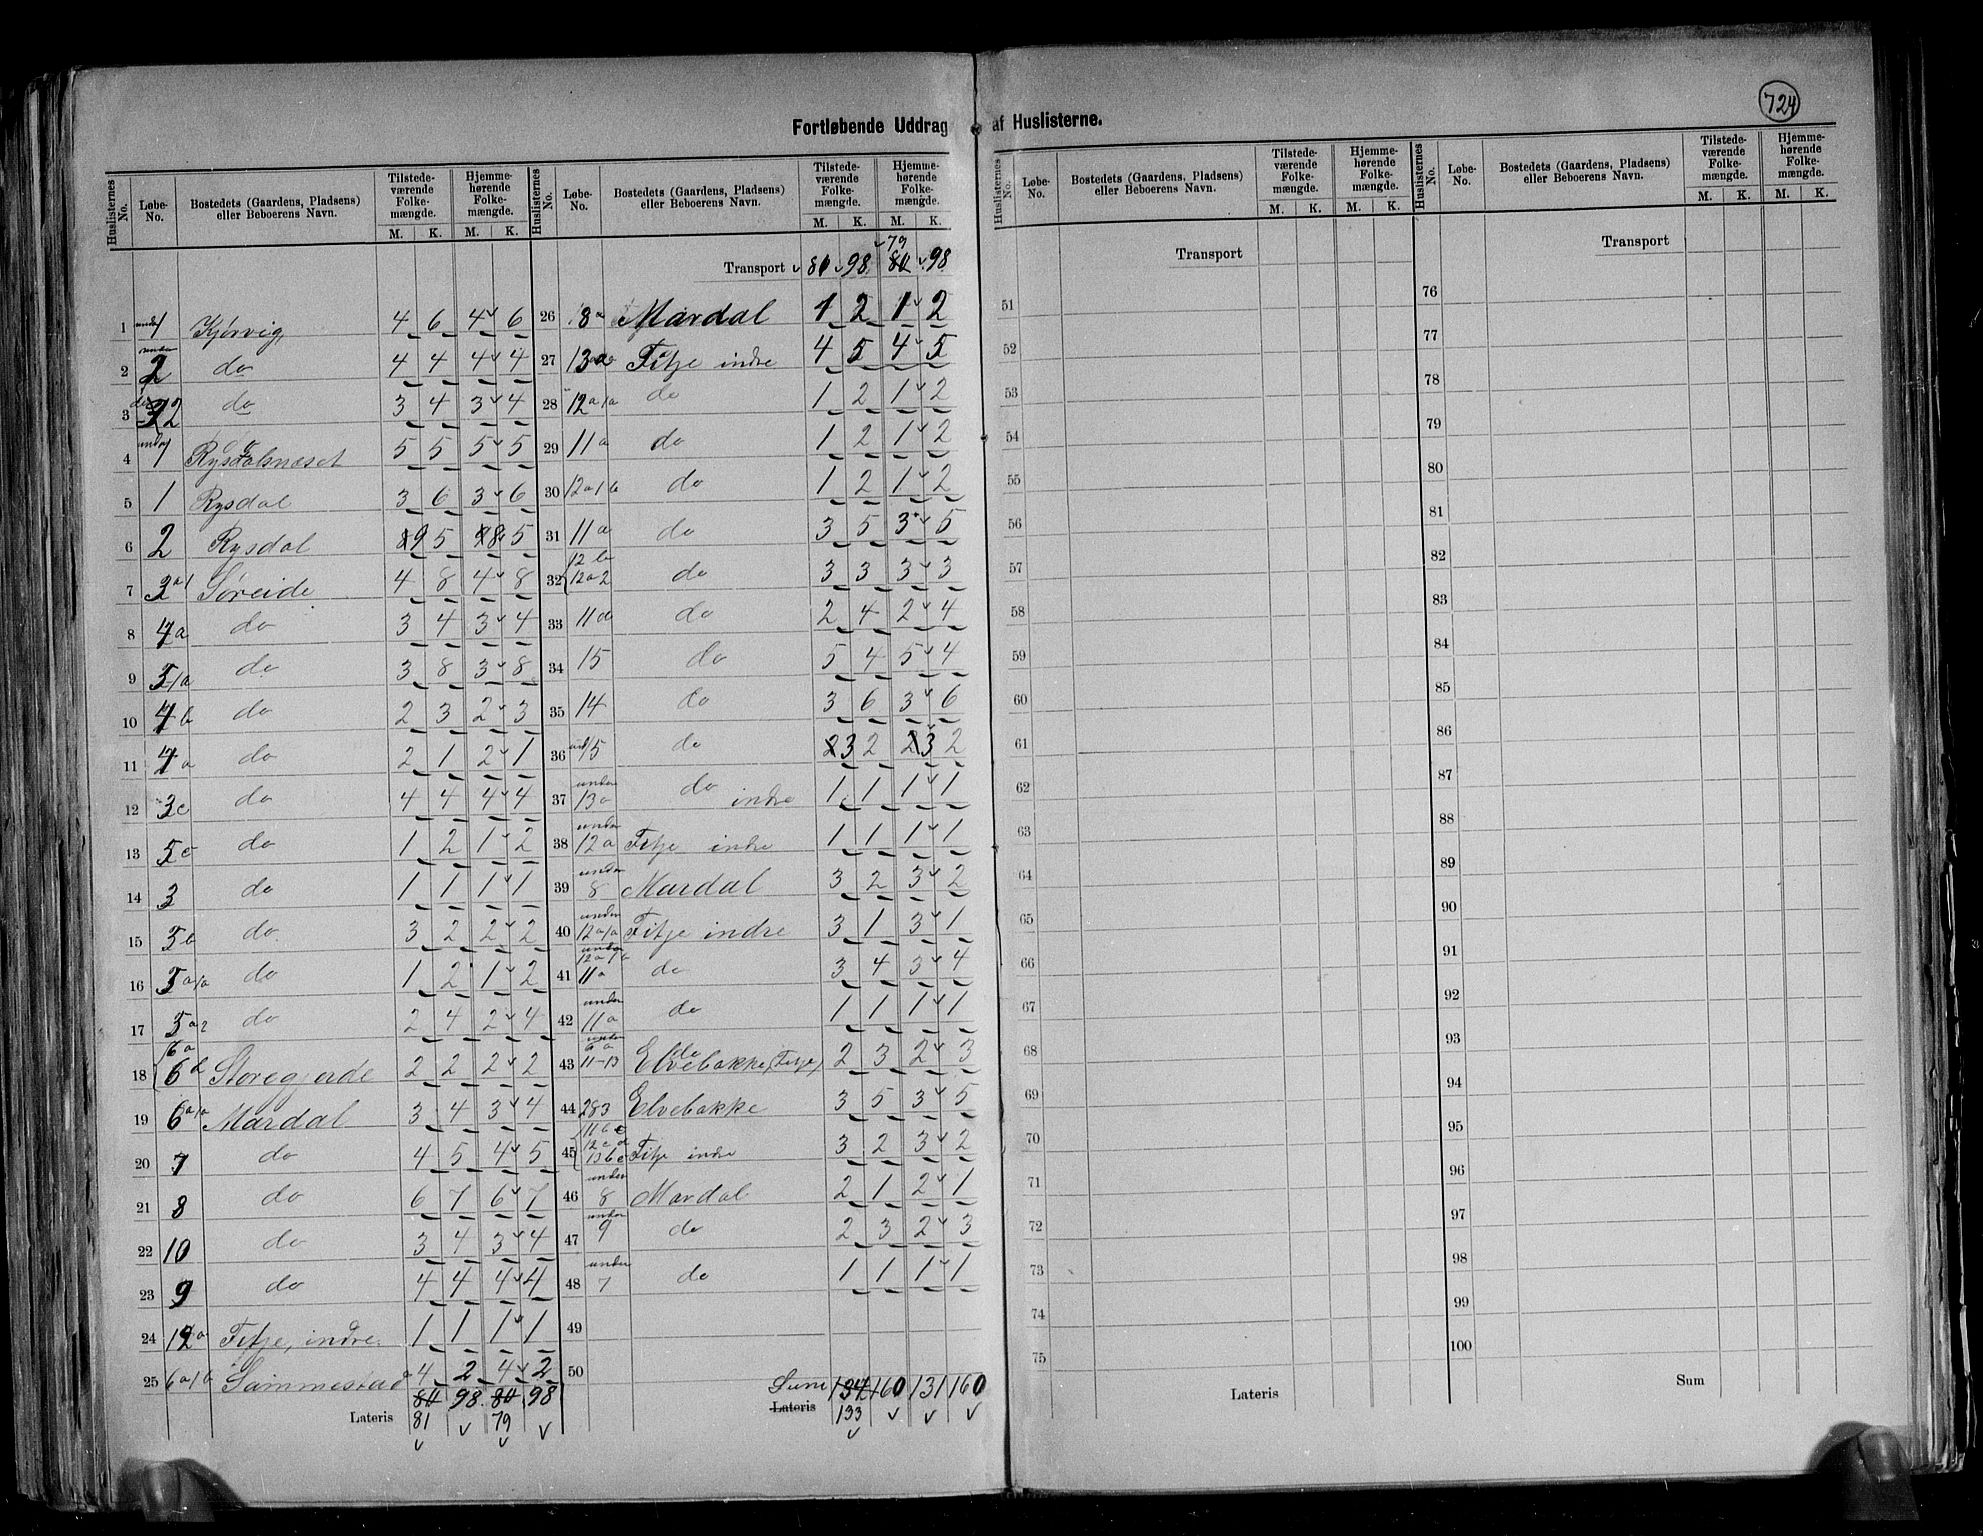 724
Fortløbende Uddrag af Huslisterne.
Huslisternes No. Løbe-No. Bostedets (Gaardens, Pladsens) eller Beboerens Navn. Tilstedeværende Folkemængde. M. K. Hjemmehørende Folkemængde. M. K.
1 under 1 Kjørvig, 4 6 4 6
2 under 2 do 4 4 4 4
3 2 do 3 4 3 4
4 under 1 Rysdalsnæset 5 5 5 5
5 1 Rysdal 3 6 3 6
6 2 Rysdal 9 5 8 5
7 3a1 Søreide 4 8 4 8
8 4a do 3 4 3 4
9 5/a do 3 8 3 8
10 4b do 2 3 2 3
11 4a do 2 1 2 1
12 3c do 4 4 4 4
13 5c do 1 2 1 2
14 3 do 1 1 1 1
15 5b do 3 2 2 2
16 5a/a do 1 2 1 2
17 5a2 do 2 4 2 4
18 6a 6d Storegjerde 2 2 2 2
19 6a/a Mardal 3 4 3 4
20 7 do 4 5 4 5
21 8 do 6 7 6 7
22 10 do 3 4 3 4
23 9 do 4 4 4 4
24 12a Fitje, indre. 1 1 1 1
25 6a1b Sammestad 4 2 4 2
80 98 80 98
Lateris 81 79
Huslisternes No. Løbe-No. Bostedets (Gaardens, Pladsens) eller Beboerens Navn. Tilstedeværende Folkemængde. M. K. Hjemmehørende Folkemængde. M. K.
79
Transport 81 98 80 98
26 8a Mardal 1 2 1 2
27 13a Fitje indre 4 5 4 5
28 12a1a do 1 2 1 2
29 11a do 1 2 1 2
30 12a1b do 1 2 1 2
31 11a do 3 5 3 5
32 12b 12a2 do 3 3 3 3
33 11d do 2 4 2 4
34 15 do 5 4 5 4
35 14 do 3 6 3 6
36 15 do 2 3 2 2 3 2
37 under 13a do indre 1 1 1 1
38 under 12a Fitje indre 1 1 1 1
39 under 8 Mardal 3 2 3 2
40 under 12a1a Fitje indre 3 1 3 1
41 under 12a1b 11a do 3 4 3 4
42 under 11a do 1 1 1 1
43 under 6a 11-13 do Elvebakke (Fitje) 2 3 2 3
44 283 Elvebakke 3 5 3 5
45 11bc 12cd 13bc Fitje indre 3 2 3 2
46 under 8 Mardal 2 1 2 1
47 under 9 do 2 3 2 3
48 under 7 do 1 1 1 1
49
50
Sum 134 160 131 160
Lateris 133
Huslisternes No. Løbe-No. Bostedets (Gaardens, Pladsens) eller Beboerens Navn. Tilstedeværende Folkemængde. M. K. Hjemmehørende Folkemængde. M. K.
Transport
51
52
53
54
55
56
57
58
59
60
61
62
63
64
65
66
67
68
69
70
71
72
73
74
75
Lateris
Huslisternes No. Løbe-No. Bostedets (Gaardens, Pladsens) eller Beboerens Navn. Tilstedeværende Folkemængde. M. K. Hjemmehørende Folkemængde. M. K.
Transport
76
77
78
79
80
81
82
83
84
85
86
87
88
89
90
91
92
93
94
95
96
97
98
99
100
Sum